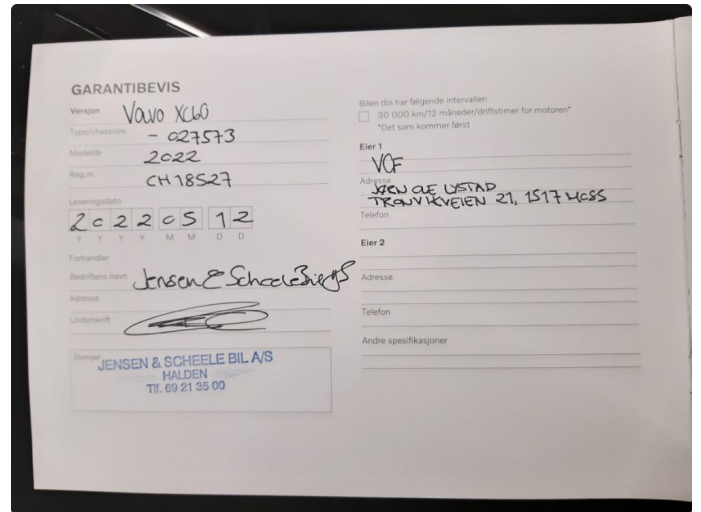 GARANTIBEVIS
Versjon Volvo XC60
Type/chassisnr. - 027573
Modellår 2022
Reg.nr. CH 18527
Leveringsdato
2 0 2 2 0 5 1 2
Y Y Y Y M M D D
Forhandler
Bedriftens navn Jensen & Scheele Bil A/S
Adresse
Underskrift
Stempel
JENSEN & SCHEELE BIL A/S
HALDEN
Tlf. 69 21 35 00
Bilen din har følgende intervaller:
30 000 km/12 måneder/driftstimer for motoren*
*Det som kommer først
Eier 1
VCF
Adresse
JØRN OLE LYSTAD
21, 1517 MOSS
Telefon
Eier 2
Adresse
Telefon
Andre spesifikasjoner